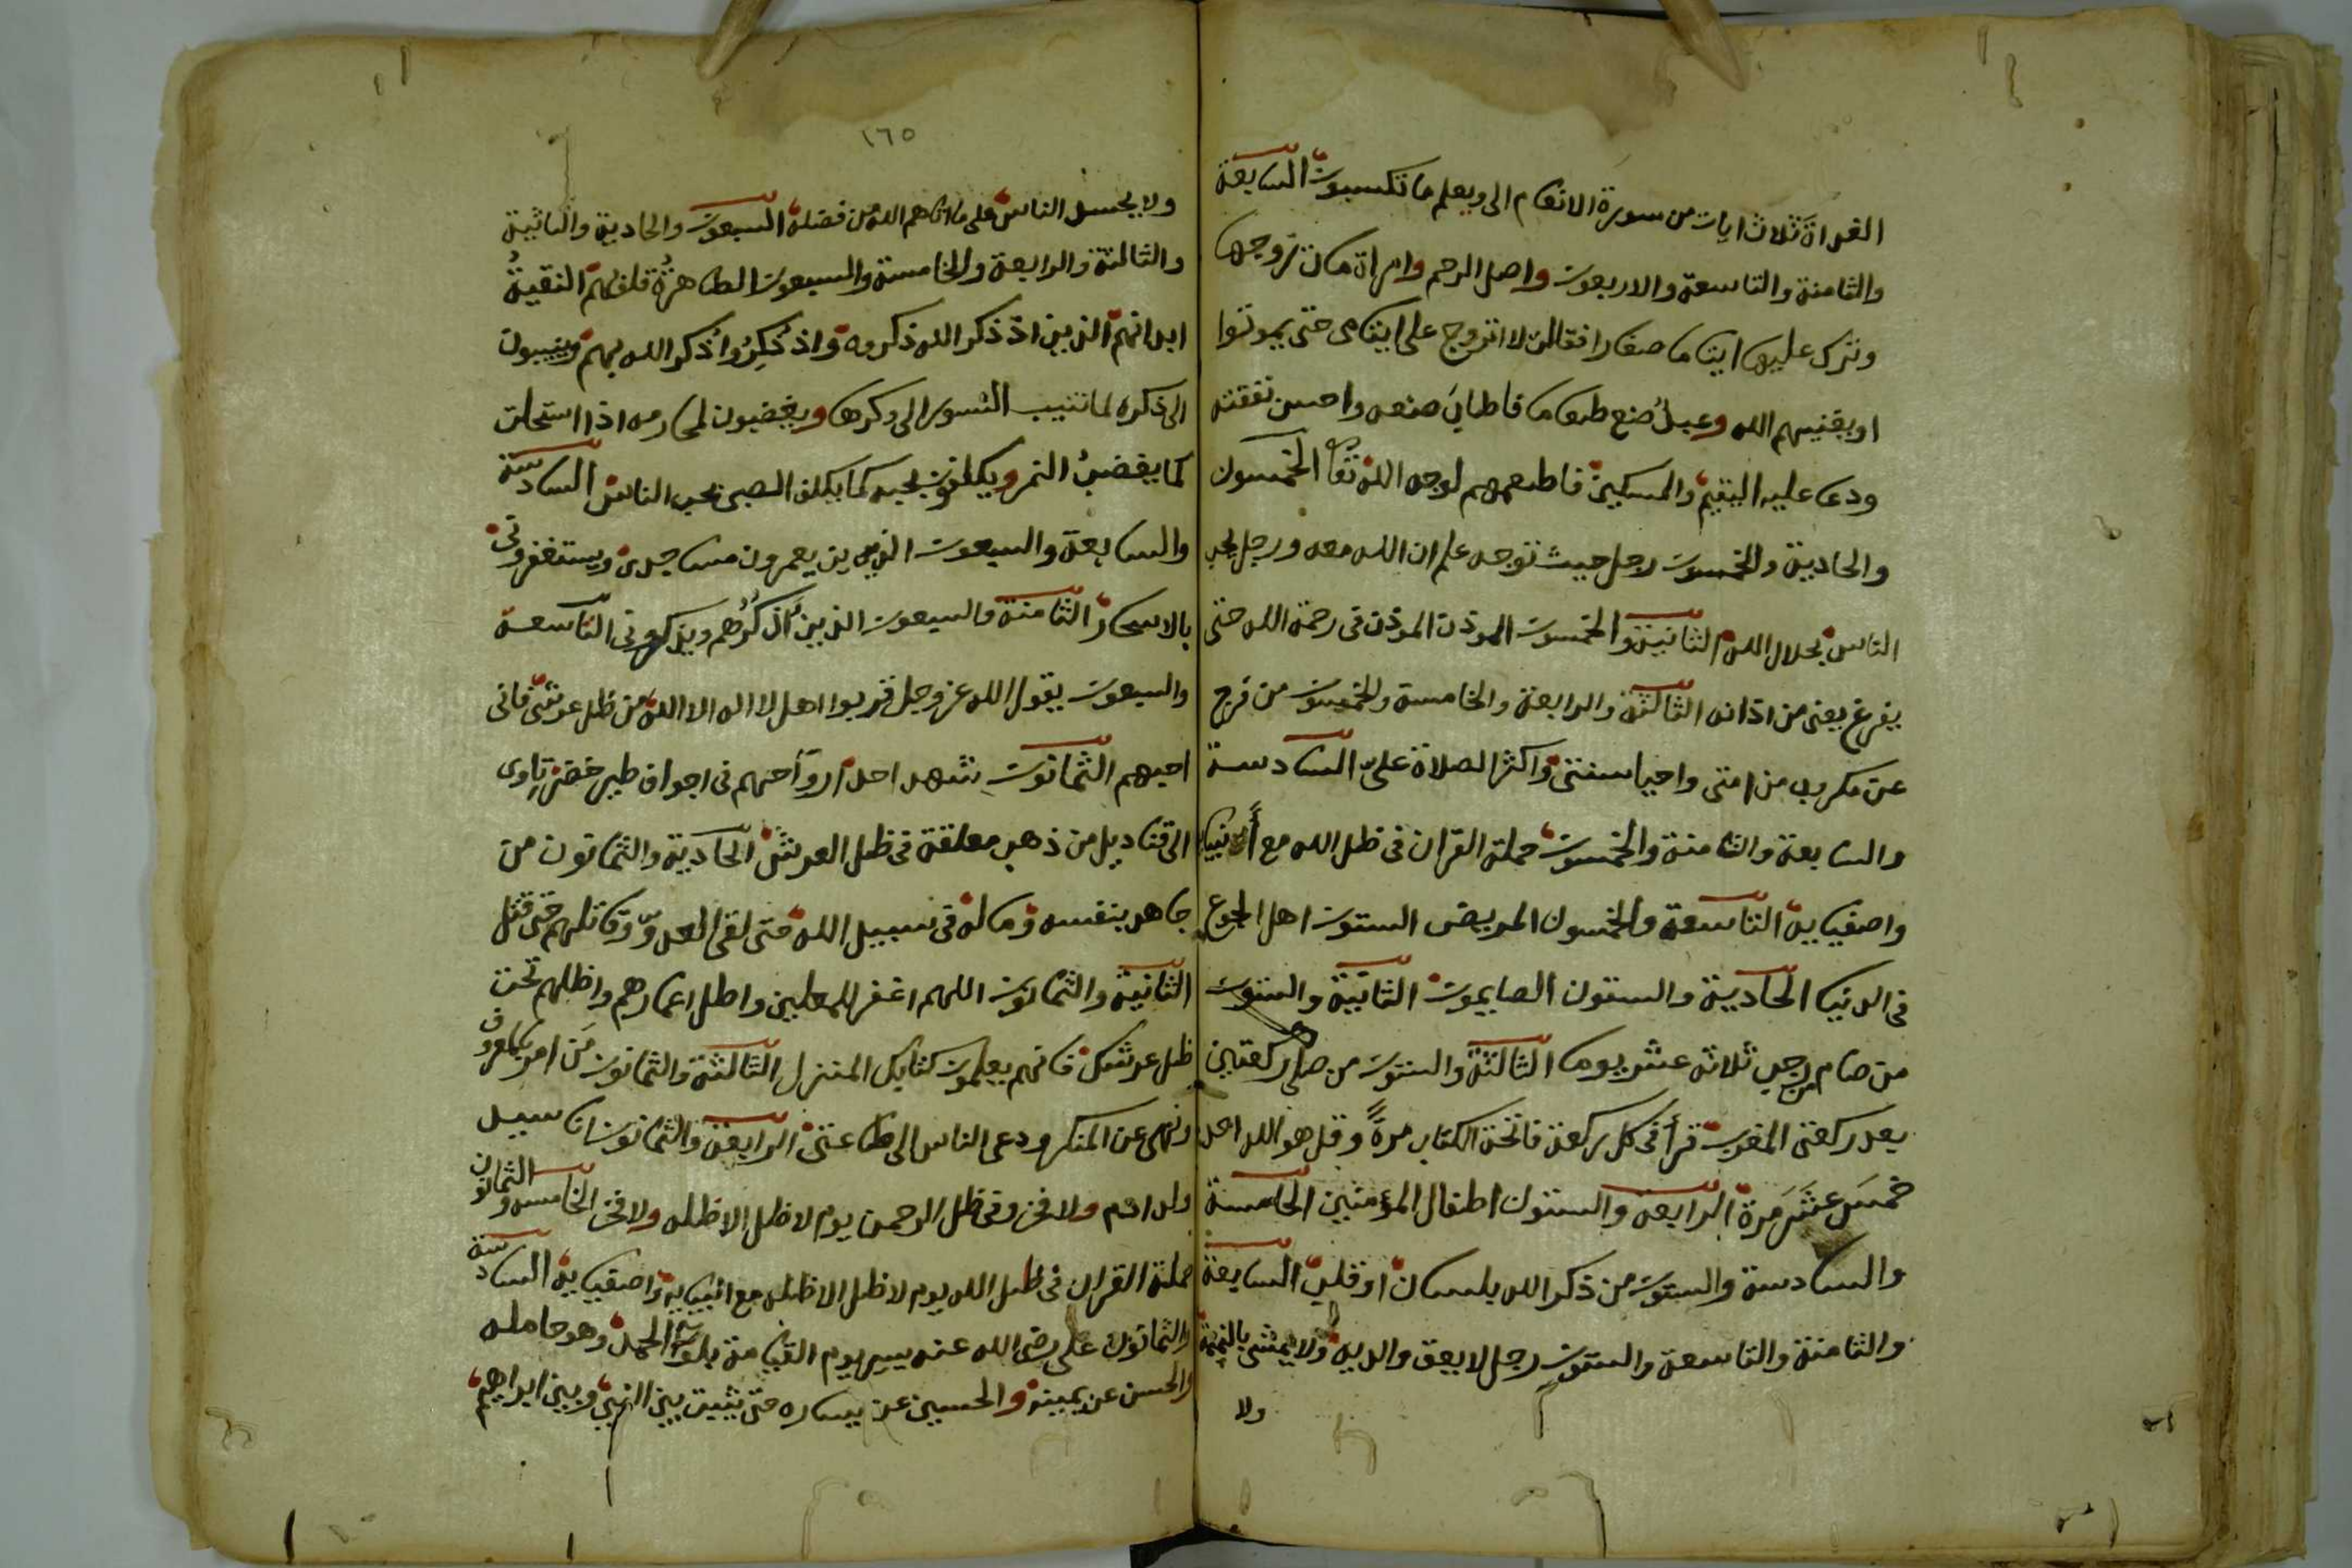 الغداة ثلاث ايات من سورة الانعام الى ويعلم ما تكسبون السابعة
والثامنة والتاسعة والاربعون واصل الرحم وامراة مات زوجها
وترك عليها ايتاما صغارا فقالت لا اتزوج على ايتامى حتى يموتوا
او يغنيهم الله وعبد صنع طعاما فاطاب صنعه واحسن نفقته
ودعى عليه اليتيم والمسكين فاطعمهم لوجه الله تعا الخمسون
والحادية والخمسون رجل حيث توجه علم ان الله معه ورجل يحب
الناس بجلال الله الثانية والخمسون الموذن الموذن فى رحمة الله حتى
يفرغ يعنى من اذانه الثالثة والرابعة والخامسة والخمسون من فرج
عن مكروب من امتى واحيا سنتى واكثر الصلاة على السادسة
والسابعة والثامنة والخمسون حملة القران فى ظل الله مع أنبيا
واصفيايه التاسعة والخمسون المريض الستون اهل الجوع
فى الدنيا الحادية والستون الصايمون الثانية والستون
من صام من رجب ثلاثة عشر يوما الثالثة والستون من صلى ركعتين
بعد ركعتى المغرب قرأ فى كل ركعة فاتحة الكتاب مرة وقل هو الله احد
خمس عشر مرة الرابعة والستون اطفال المؤمنين الخامسة
والسادسة والستون من ذكر الله بلسان او قلب السابعة
والثامنة والتاسعة والستون رجل لا يعق والديه ولا يمشى بالنميمة
ولا
١٦٥
ولا يحسد الناس على ما اتاهم الله من فضله السبعون والحادية والثانية
والثالثة والرابعة والخامسة والسبعون الطاهرة قلوبهم النقية
ابدانهم الذين اذ ذكر الله ذكروه واذ ذكروا ذكر الله بهم وينيبون
الى ذكره لما تنيب النسور الى وكرها ويغضبون لمحارمه اذا استحلت
كما يغضب النمر ويكلفون بحبه كما يكلف الصبى بحب الناس السادسة
والسابعة والسبعون الذين يعمرون مساجدى ويستغفرونى
بالاسحار الثامنة والسبعون الذين أذكرهم ويذكرونى التاسعة
والسبعون يقول الله عز وجل قربوا اهل لا اله الا الله من ظل عرشى فانى
احبهم الثمانون شهدا احد ارواحهم فى اجواف طير خضر تاوى
الى قناديل من ذهب معلقة فى ظل العرش الحادية والثمانون من
جاهد بنفسه وماله فى سبيل الله حتى لقى العدو وقاتلهم حتى قتل
الثانية والثمانون اللهم اغفر للمعلمين واطل اعمارهم واظلهم تحت
ظل عرشك فانهم يعلمون كتابك المنزل الثالثة والثمانون من امر بالمعروف
ونهى عن المنكر ودعى الناس الى طاعتى الرابعة والثمانون انا سيد
ولد ادم ولا فخر وفى ظل الرحمن يوم لا ظل الا ظله ولا فخر الخامسه والثمانون
حملة القران فى ظل الله يوم لا ظل الا ظله مع انبيايه واصفيايه السادسة
والثمانون على رضى الله عنه يسير يوم القيامة بلواء الحمد وهو حامله
والحسن عن يمينه والحسين عن يساره حتى يثبت بين النبى وبين ابراهيم